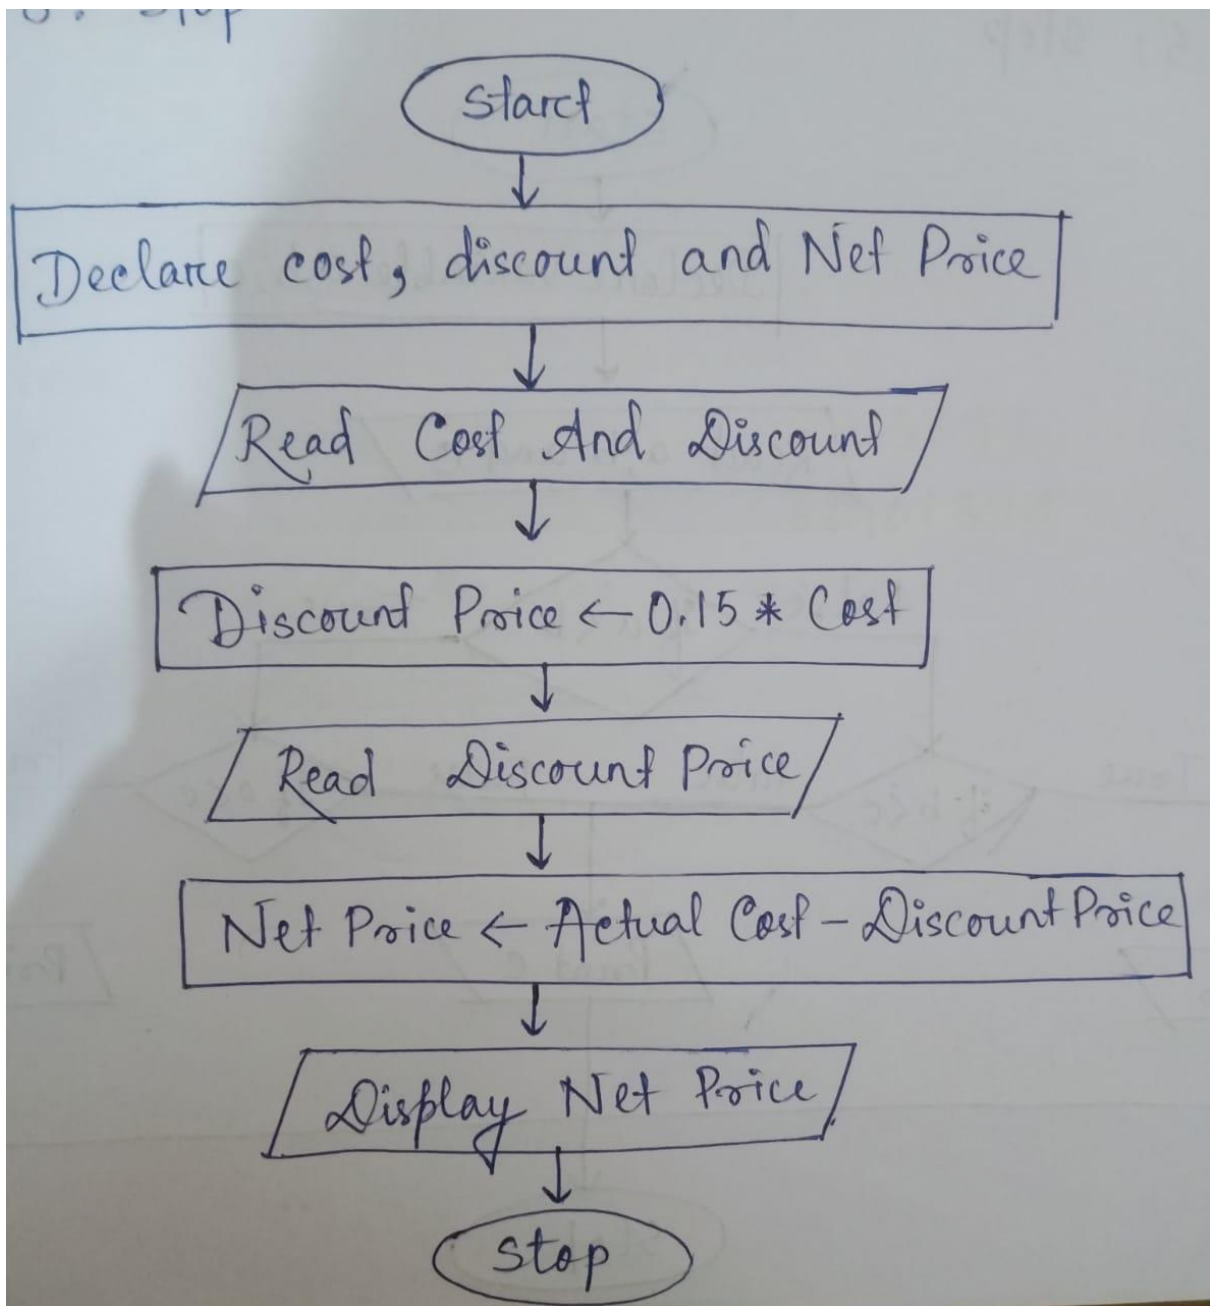 Stop
Start
Declare cost, discount and Net Price
Read Cost And Discount
Discount Price ← 0.15 * Cost
Read Discount Price
Net Price ← Actual Cost - Discount Price
Display Net Price
Stop